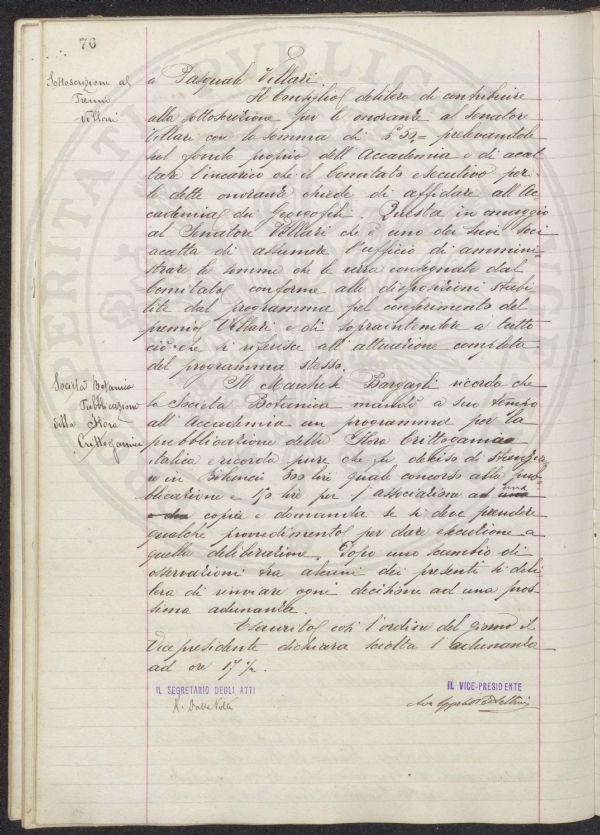 76
Sottoscrizione al
Premio
Villari
a Pasquale Villari.
Il Consiglio delibera di contribuire
alla sottoscrizione per le onoranze al Senatore
Villari con la somma di £ 50= prelevandole
pel fondo proprio dell'Accademia e di accet
tare l'incarico che il Comitato esecutivo per
le dette onoranze chiede di affidare all'Ac
cademia dei Georgofili. Questa in omaggio
al Senatore Villari che è uno dei suoi soci
accetta di assumere l'ufficio di ammini=
strare le somme che le verrà consegnate dal
Comitato conforme alle disposizioni stabi=
lite dal programma pel conferimento del
premio Villari e di sopraintendere a tutto
ciò che si riferisce all'attuazione completa
del programma stesso.
Società Botanica
Pubblicazione
della Flora
Crittogamica
Il Marchese Bargagli ricorda che
la Società Botanica mandò a suo tempo
all'Accademia un programma per la
pubblicazione della Flora Crittogamica
italica e ricorda pure che si decise di stanzia=
re in Bilancio 300 lire quale concorso alla pub=
blicazione e 150 lire per l'associazione ad una
copia e domanda se si deve prendere
qualche provvedimento per dare esecuzione a
quella deliberazione. Dopo uno scambio di
osservazioni tra alcuni dei presenti si deli
bera di rinviare ogni decisione ad una pros
sima adunanza.
Esaurito così l'ordine del giorno il
Vice presidente dichiara sciolta l'adunanza
ad ore 17 ½.
IL SEGRETARIO DEGLI ATTI
IL VICE-PRESIDENTE
R. Dalla Volta